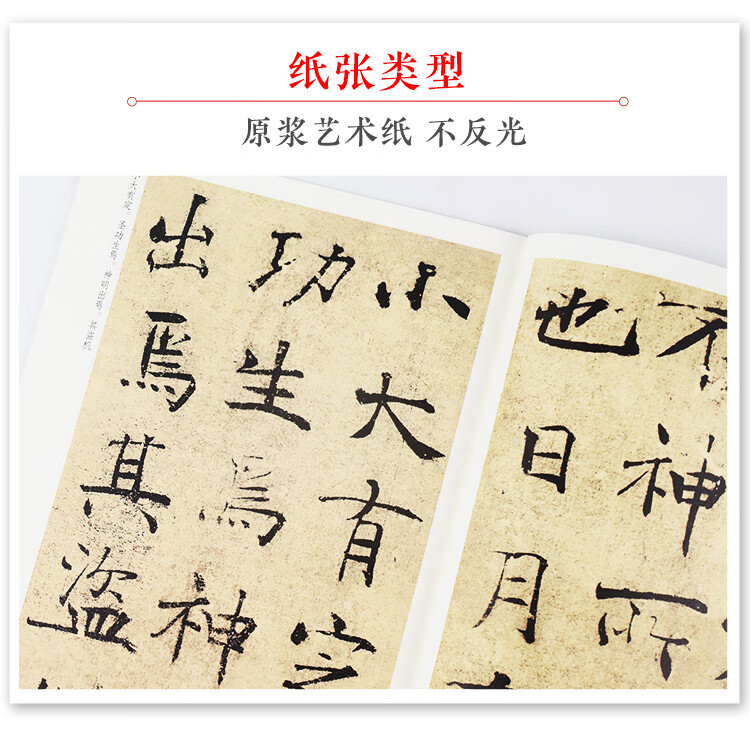 纸张类型
原浆艺术纸 不反光
不神所
也日月
小大有定
功生焉神
出焉其盗
小大有定。圣功生焉。神明出焉。其盗机